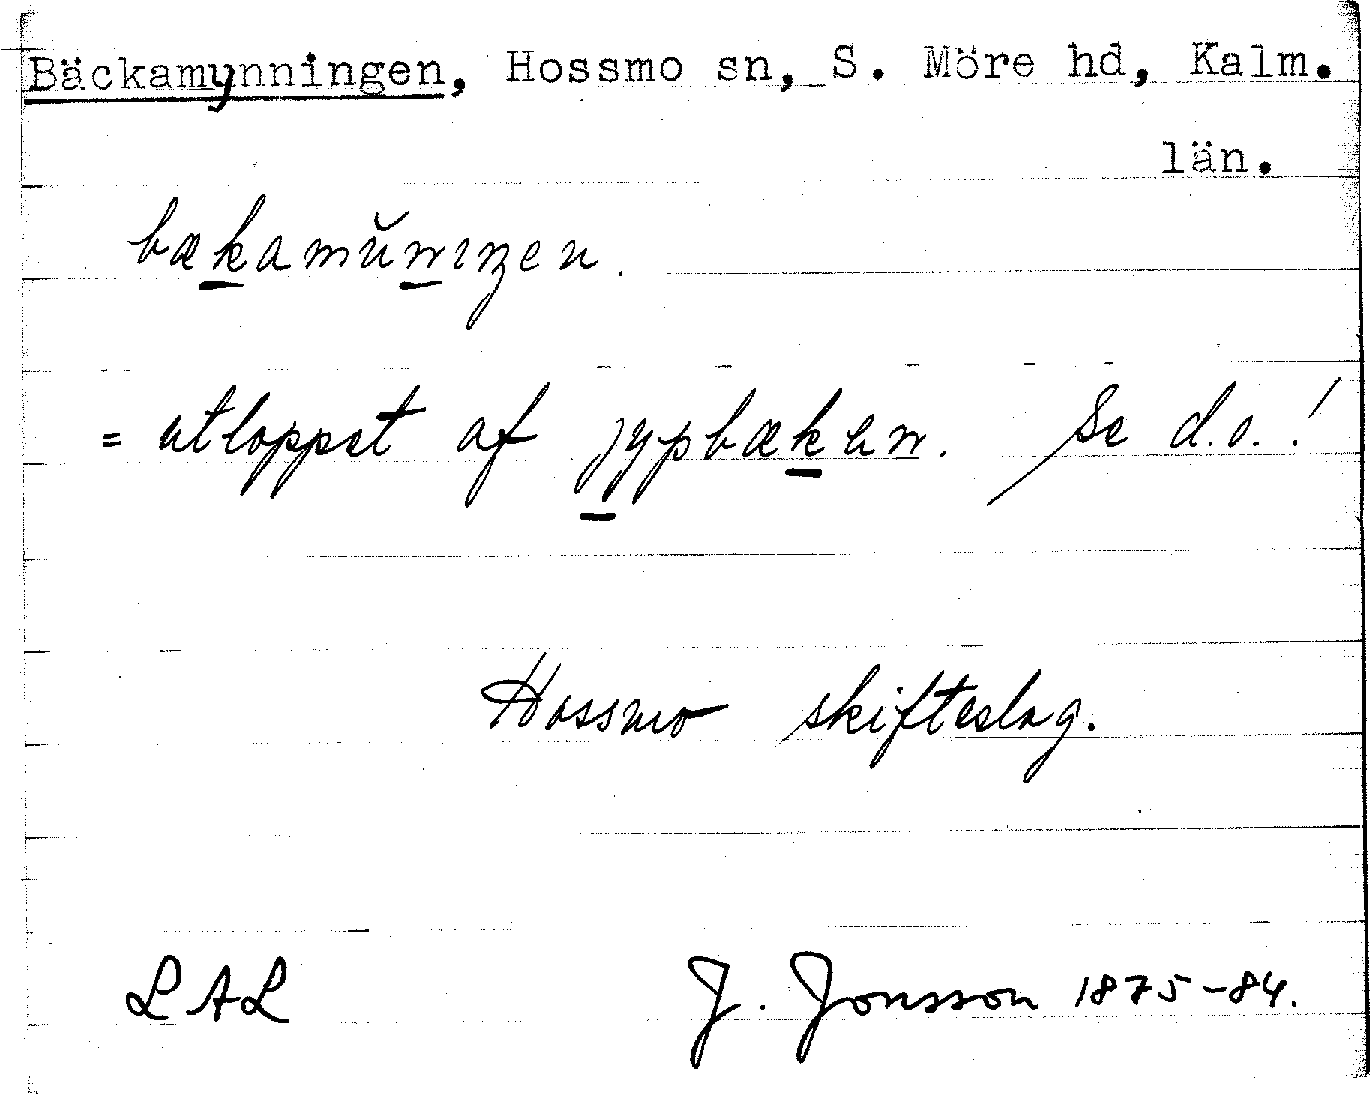 Bäckamynningen, Hossmo sn, S. Möre hd, Kalm.
län.
bækamŭnıŋen.
= utloppet af jypbæken. Se d.o.!
Hossmo skifteslag.
LAL
J. Jonsson 1875-84.